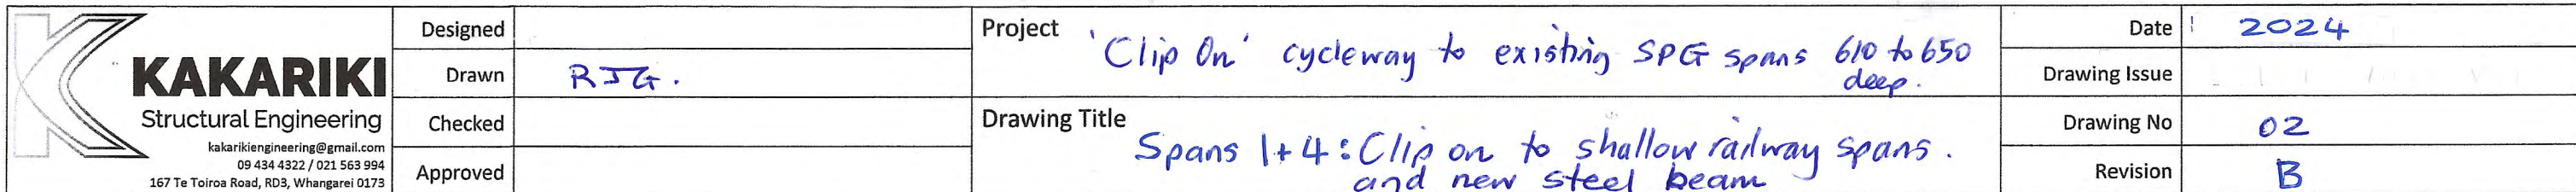 KAKARIKI
Structural Engineering
kakarikiengineering@gmail.com
09 434 4322 / 021 563 994
167 Te Toiroa Road, RD3, Whangarei 0173
Designed
Drawn RJG.
Checked
Approved
Project 'Clip On' cycleway to existing SPG spans 610 to 650
deep.
Drawing Title
Spans 1+4: Clip on to shallow railway spans.
and new steel beam
Date 2024
Drawing Issue
Drawing No 02
Revision B